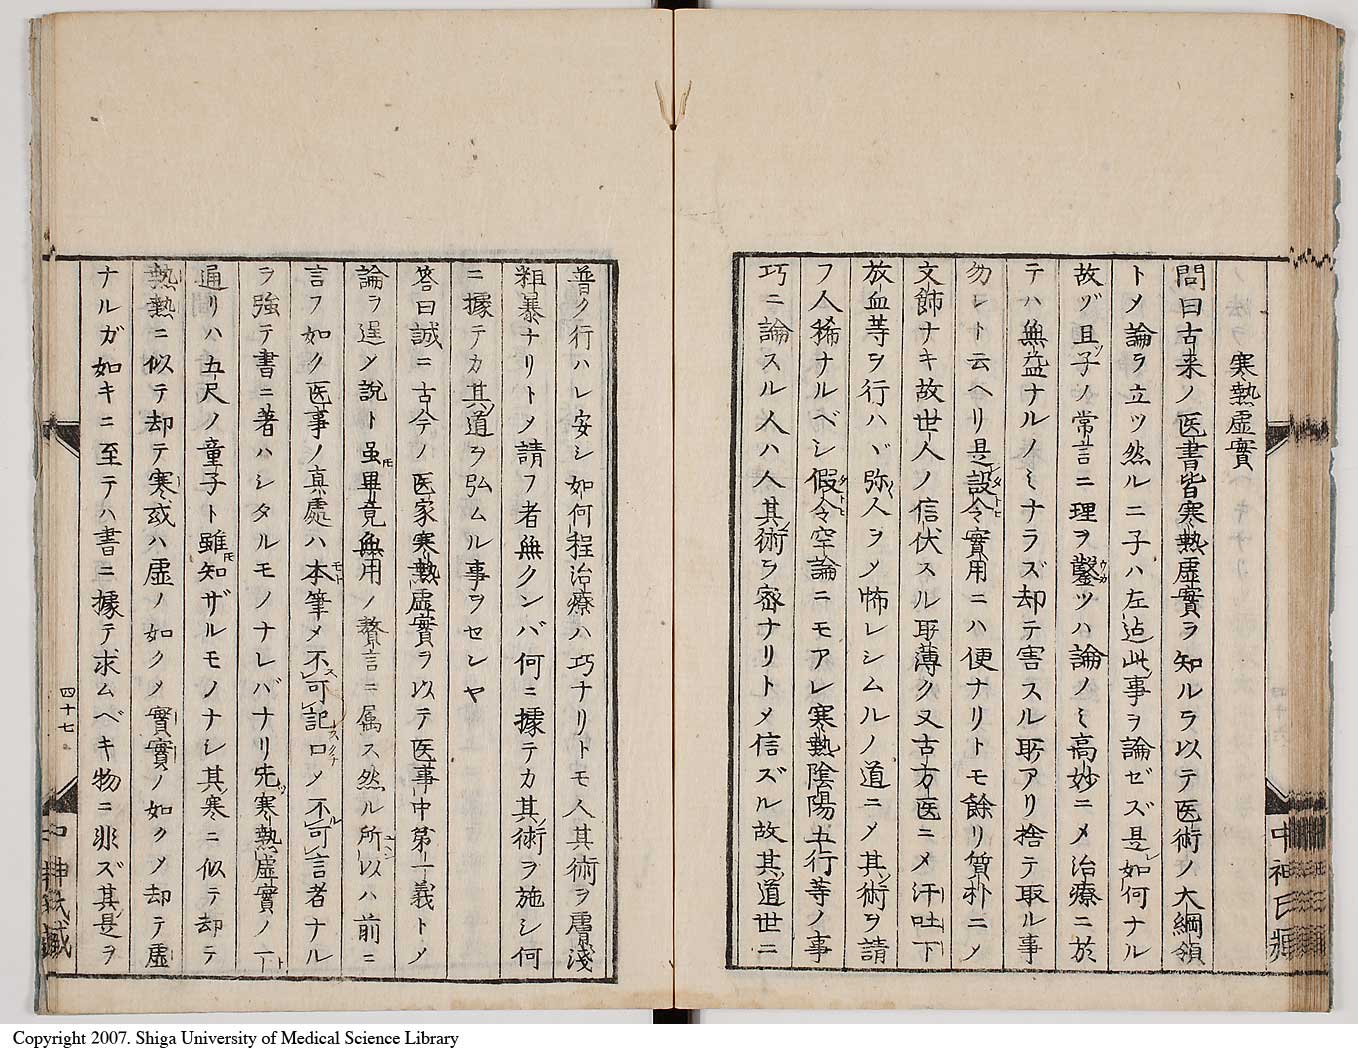 寒熱虚實
問曰古来ノ医書皆寒熱虚實ヲ知ルヲ以テ医術ノ大綱領
トメ論ヲ立ツ然ルニ子ハ左迠此事ヲ論ゼズ是如何ナル
故ゾ且子ノ常言ニ理ヲ鑿ツハ論ノミ高妙ニメ治療ニ於
テハ無益ナルノミナラズ却テ害スル所アリ捨テ取ル事
勿レト云ヘリ是設令實用ニハ便ナリトモ餘リ質朴ニメ
文飾ナキ故世人ノ信伏スル所薄ク又古方医ニメ汗吐下
放血等ヲ行ハヾ弥人ヲメ怖レシムルノ道ニメ其術ヲ請
フ人稀ナルベシ假令空論ニモアレ寒熱陰陽五行等ノ事
巧ニ論スル人ハ人其術ヲ密ナリトメ信ズル故其道世ニ
中神氏蔵
普ク行ハレ安シ如何程治療ハ巧ナリトモ人其術ヲ膚淺
粗暴ナリトメ請フ者無クンバ何ニ據テカ其術ヲ施シ何
ニ據テカ其道ヲ弘ムル事ヲセンヤ
答曰誠ニ古今ノ医家寒熱虚實ヲ以テ医事中第一義トメ
論ヲ逞メ説ト虽畢竟無用ノ贅言ニ属ス然ル所以ハ前ニ
言フ如ク医事ノ真處ハ本筆メ不可記口メ不可言者ナル
ヲ強テ書ニ著ハシタルモノナレバナリ先寒熱虚實ノ一
通リハ五尺ノ童子ト雖知ザルモノナシ其寒ニ似テ却テ
熱熱ニ似テ却テ寒或ハ虚ノ如クメ實實ノ如クメ却テ虚
ナルガ如キニ至テハ書ニ據テ求ムベキ物ニ非ズ其是ヲ
四十七
Copyright 2007. Shiga University of Medical Science Library